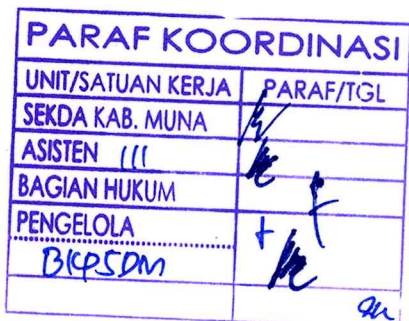 PARAF KOORDINASI
UNIT/SATUAN KERJA PARAF/TGL
SEKDA KAB. MUNA
ASISTEN III
BAGIAN HUKUM
PENGELOLA
BKPSDM